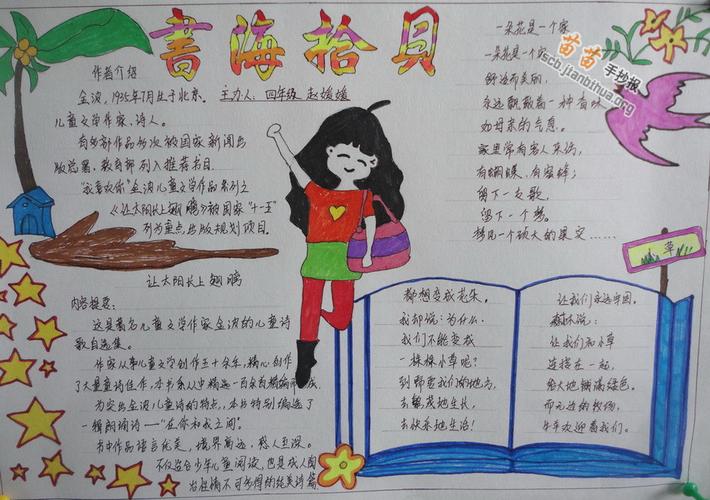 書海拾贝
作者介绍
金波，1935年7月生于北京。
主办人：四年级 赵媛媛
儿童文学作家、诗人。
有多部作品多次被国家新闻出
版总署、教育部列入推荐书目
"我喜欢你"金波儿童文学作品系列之
《让太阳长上翅膀》被国家"十一五"
列为重点出版规划项目。
让太阳长上翅膀
内容提要：
这是著名儿童文学作家金波的儿童诗
歌自选集。
作家从事儿童文学创作五十余年，精心创作
了大量童诗佳作，本书系从中精选一百余首精编而成
为突出金波儿童诗的特点，本书特别编选了
一辑朗诵诗——"在你和我之间"。
书中作品语言优美，境界高远，感人至深。
不仅适合少年儿童阅读，也是成人陶
冶性情不可多得的纯美诗篇
一朵花是一个家
一朵花是一个家
舒适而美丽，
永远飘散着一种香味
如母亲的气息。
家里常有客人来访，
有蝴蝶、有蜜蜂；
留下一支歌，
留下一个梦。
梦见一个硕大的果实……
苗苗手抄报
scb.jianbihua.org
草
都想变成花朵，
我却说：为什么
我们不能变成
一棵棵小草呢？
到那需要我们的地方，
去繁茂地生长，
去快乐地生活！
让我们永远牢固。
树林说：
让我们和小草
连接在一起，
给大地铺满绿色。
而无边的牧场，
牛羊欢迎着我们。